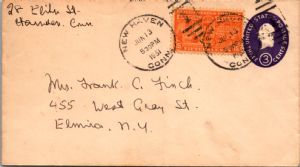 28 Elihu St.
Hamden, Conn
NEW HAVEN
JUN 13
5 30 PM
1951
CONN.
UNITED STATES POSTAGE
3
CENTS
Mrs. Frank C. Finch
455 West Gray St.
Elmira, N.Y.